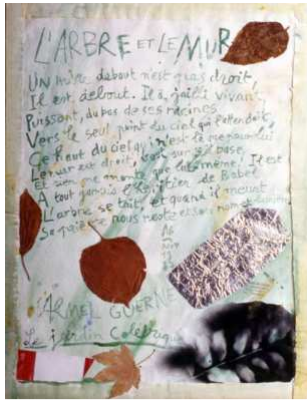 L'ARBRE ET LE MUR
UN arbre debout n'est pas droit,
Il est debout. Il a jailli vivant,
Puissant, du bas de ses racines
Vers le seul point du ciel qui l'attendait,
Ce haut du ciel qui n'est là que pour lui
Le mur est droit, sur sa base,
Et rien ne monte que lui-même! Il est
A tout jamais l'héritier de Babel
L'arbre se tait, et quand il meurt
Sa prière nous reste et son nom
ARMEL GUERNE
Le jardin colérique